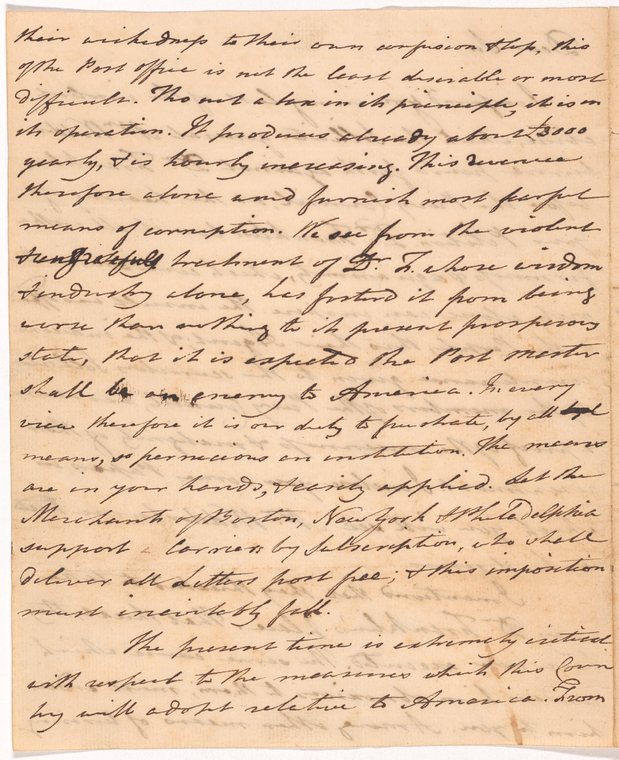 their wickedness to their own confusion & loss, this
of the Post office is not the least desirable or most
difficult. Tho not a tax in its principle, it is in
its operation. It produces already about £3000
yearly, & is hourly increasing. This revenue
therefore alone wd furnish most fearful
means of corruption. We see from the violent
& ungratefull treatment of Dr. F. whose wisdom
& industry alone, has fosterd it from being
worse than nothing to its present prosperous
state, that it is expected the Post master
shall be an enemy to America. In every
view therefore it is our duty to frustrate, by all
means, so pernicious an institution. The means
are in your hands, & easily applied. Let the
Merchants of Boston, New York & Philadelphia
support a Carrier by Subscription, who shall
deliver all Letters post free; & this imposition
must inevitably fall.
The present time is extremely critical
with respect to the measures which this Coun
try will adopt relative to America. From